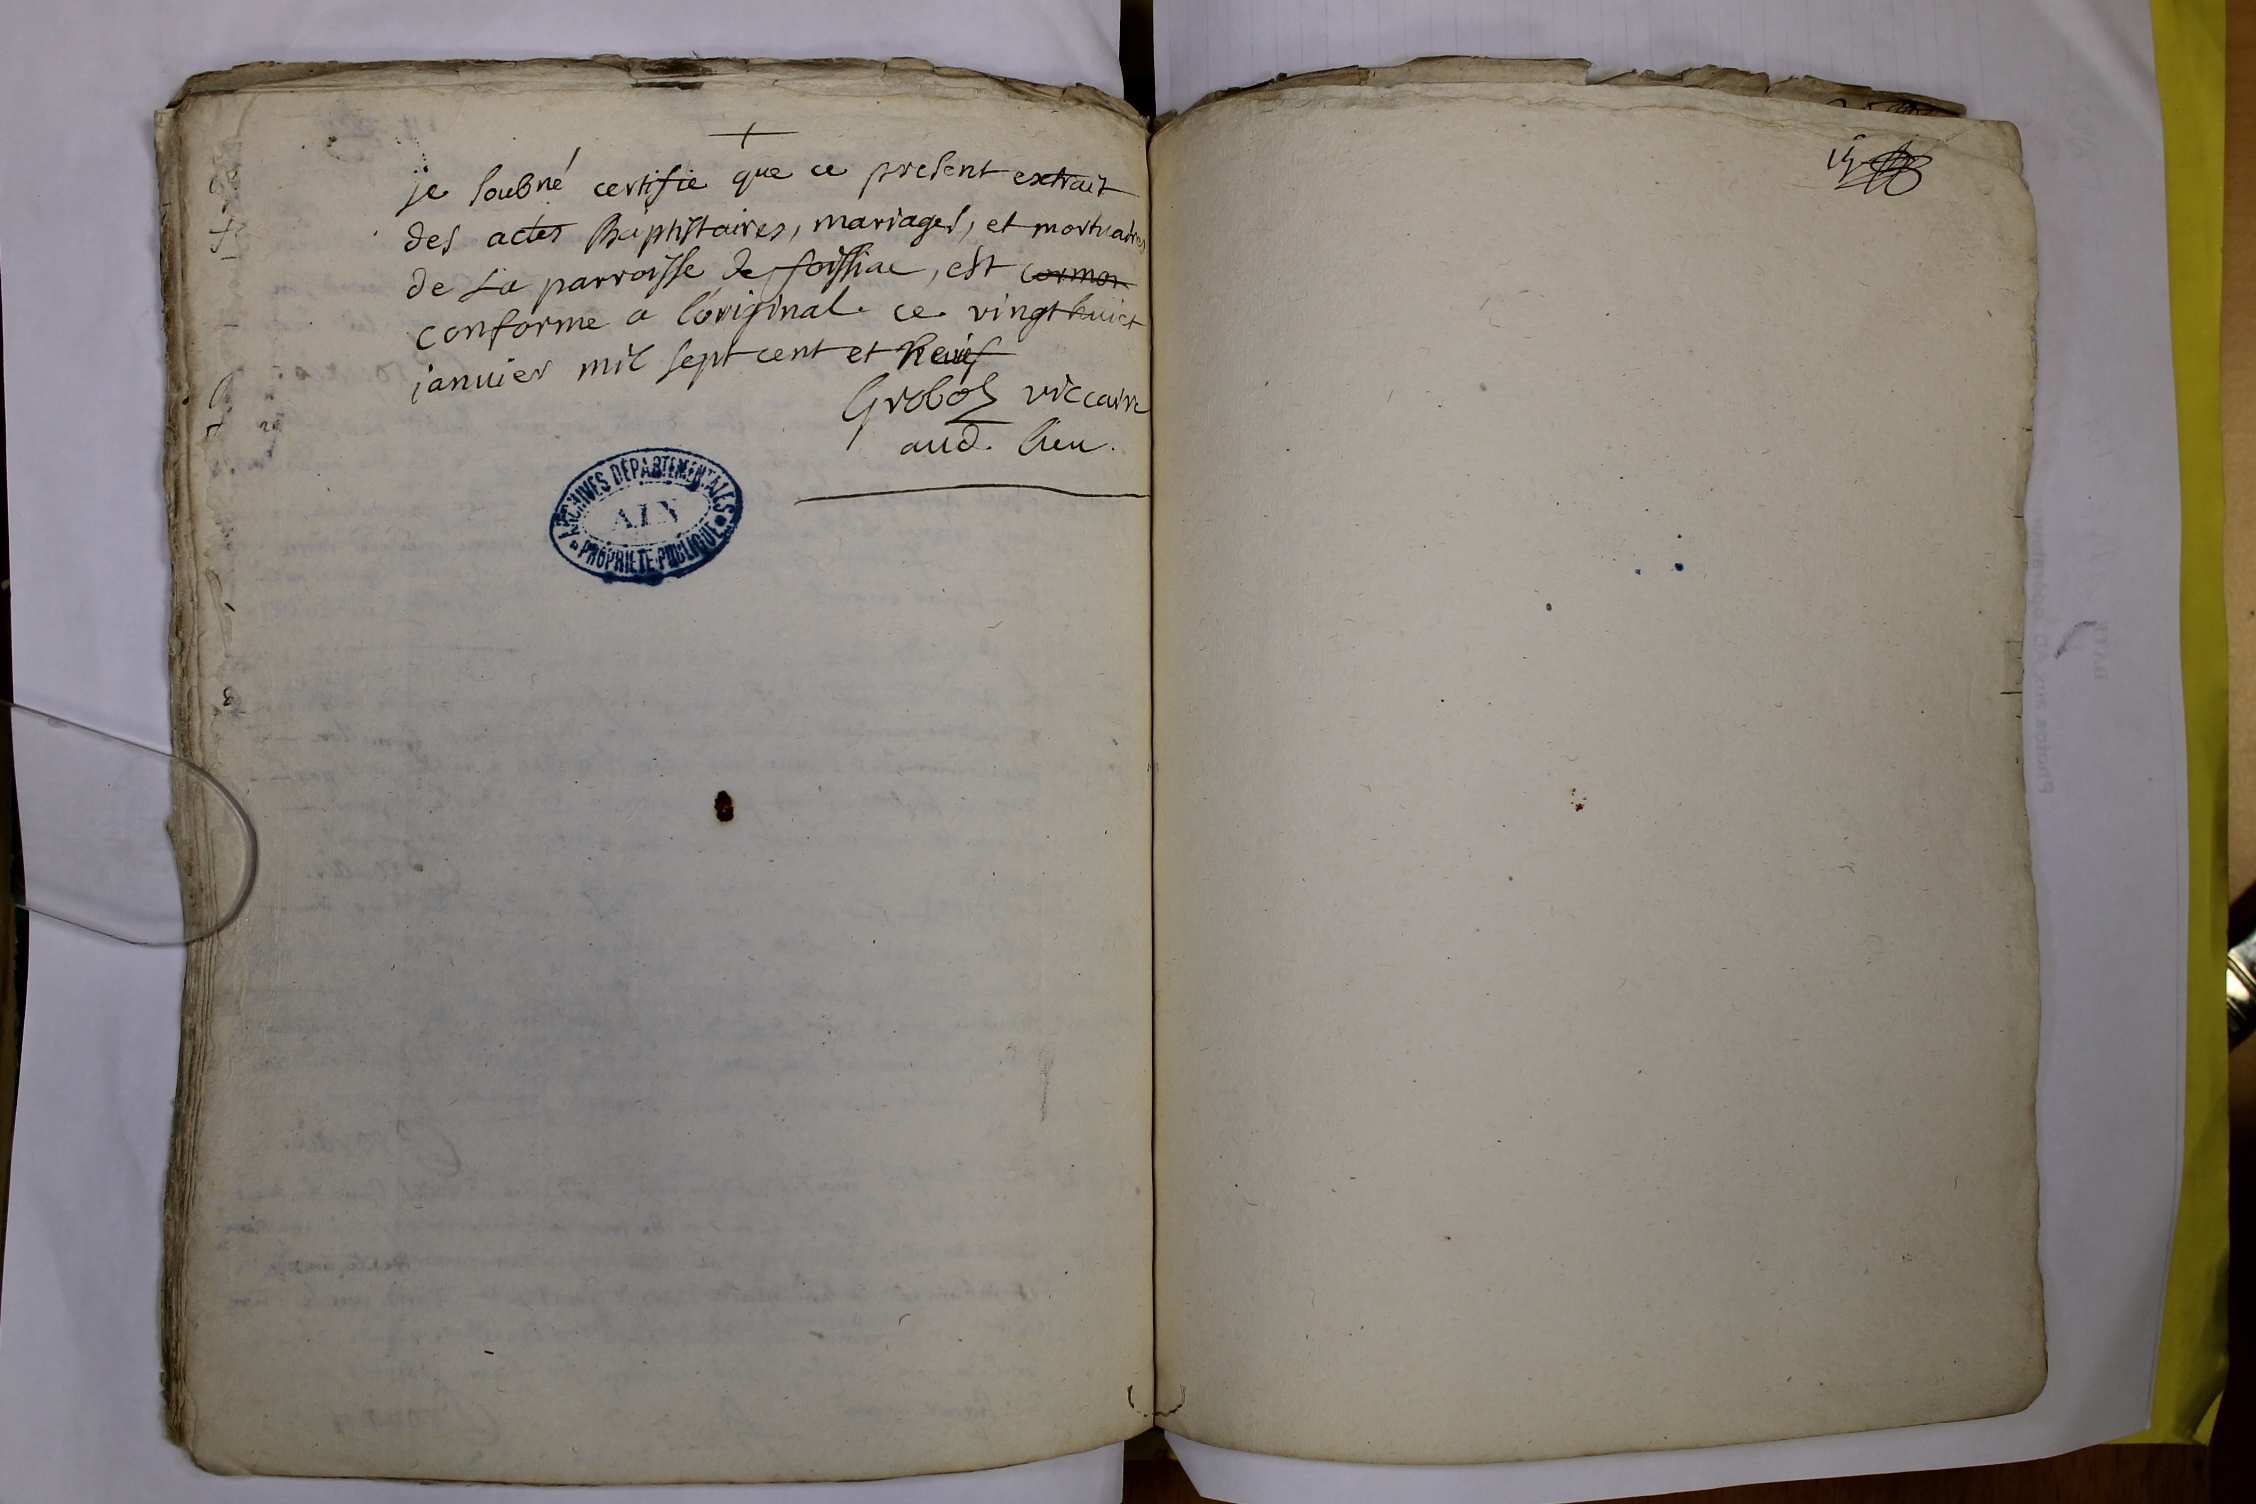 +
je soubné certifie que ce present extrait
des actes Baptistaires, mariages, et mortuaires
de La parroisse de foissiac, est cormor
conforme a l'original ce vingt huict
janvier mil sept cent et neuf
Grobos viccaire
aud. lieu.
ARCHIVES DÉPARTEMENTALES
AIN
PROPRIÉTÉ PUBLIQUE